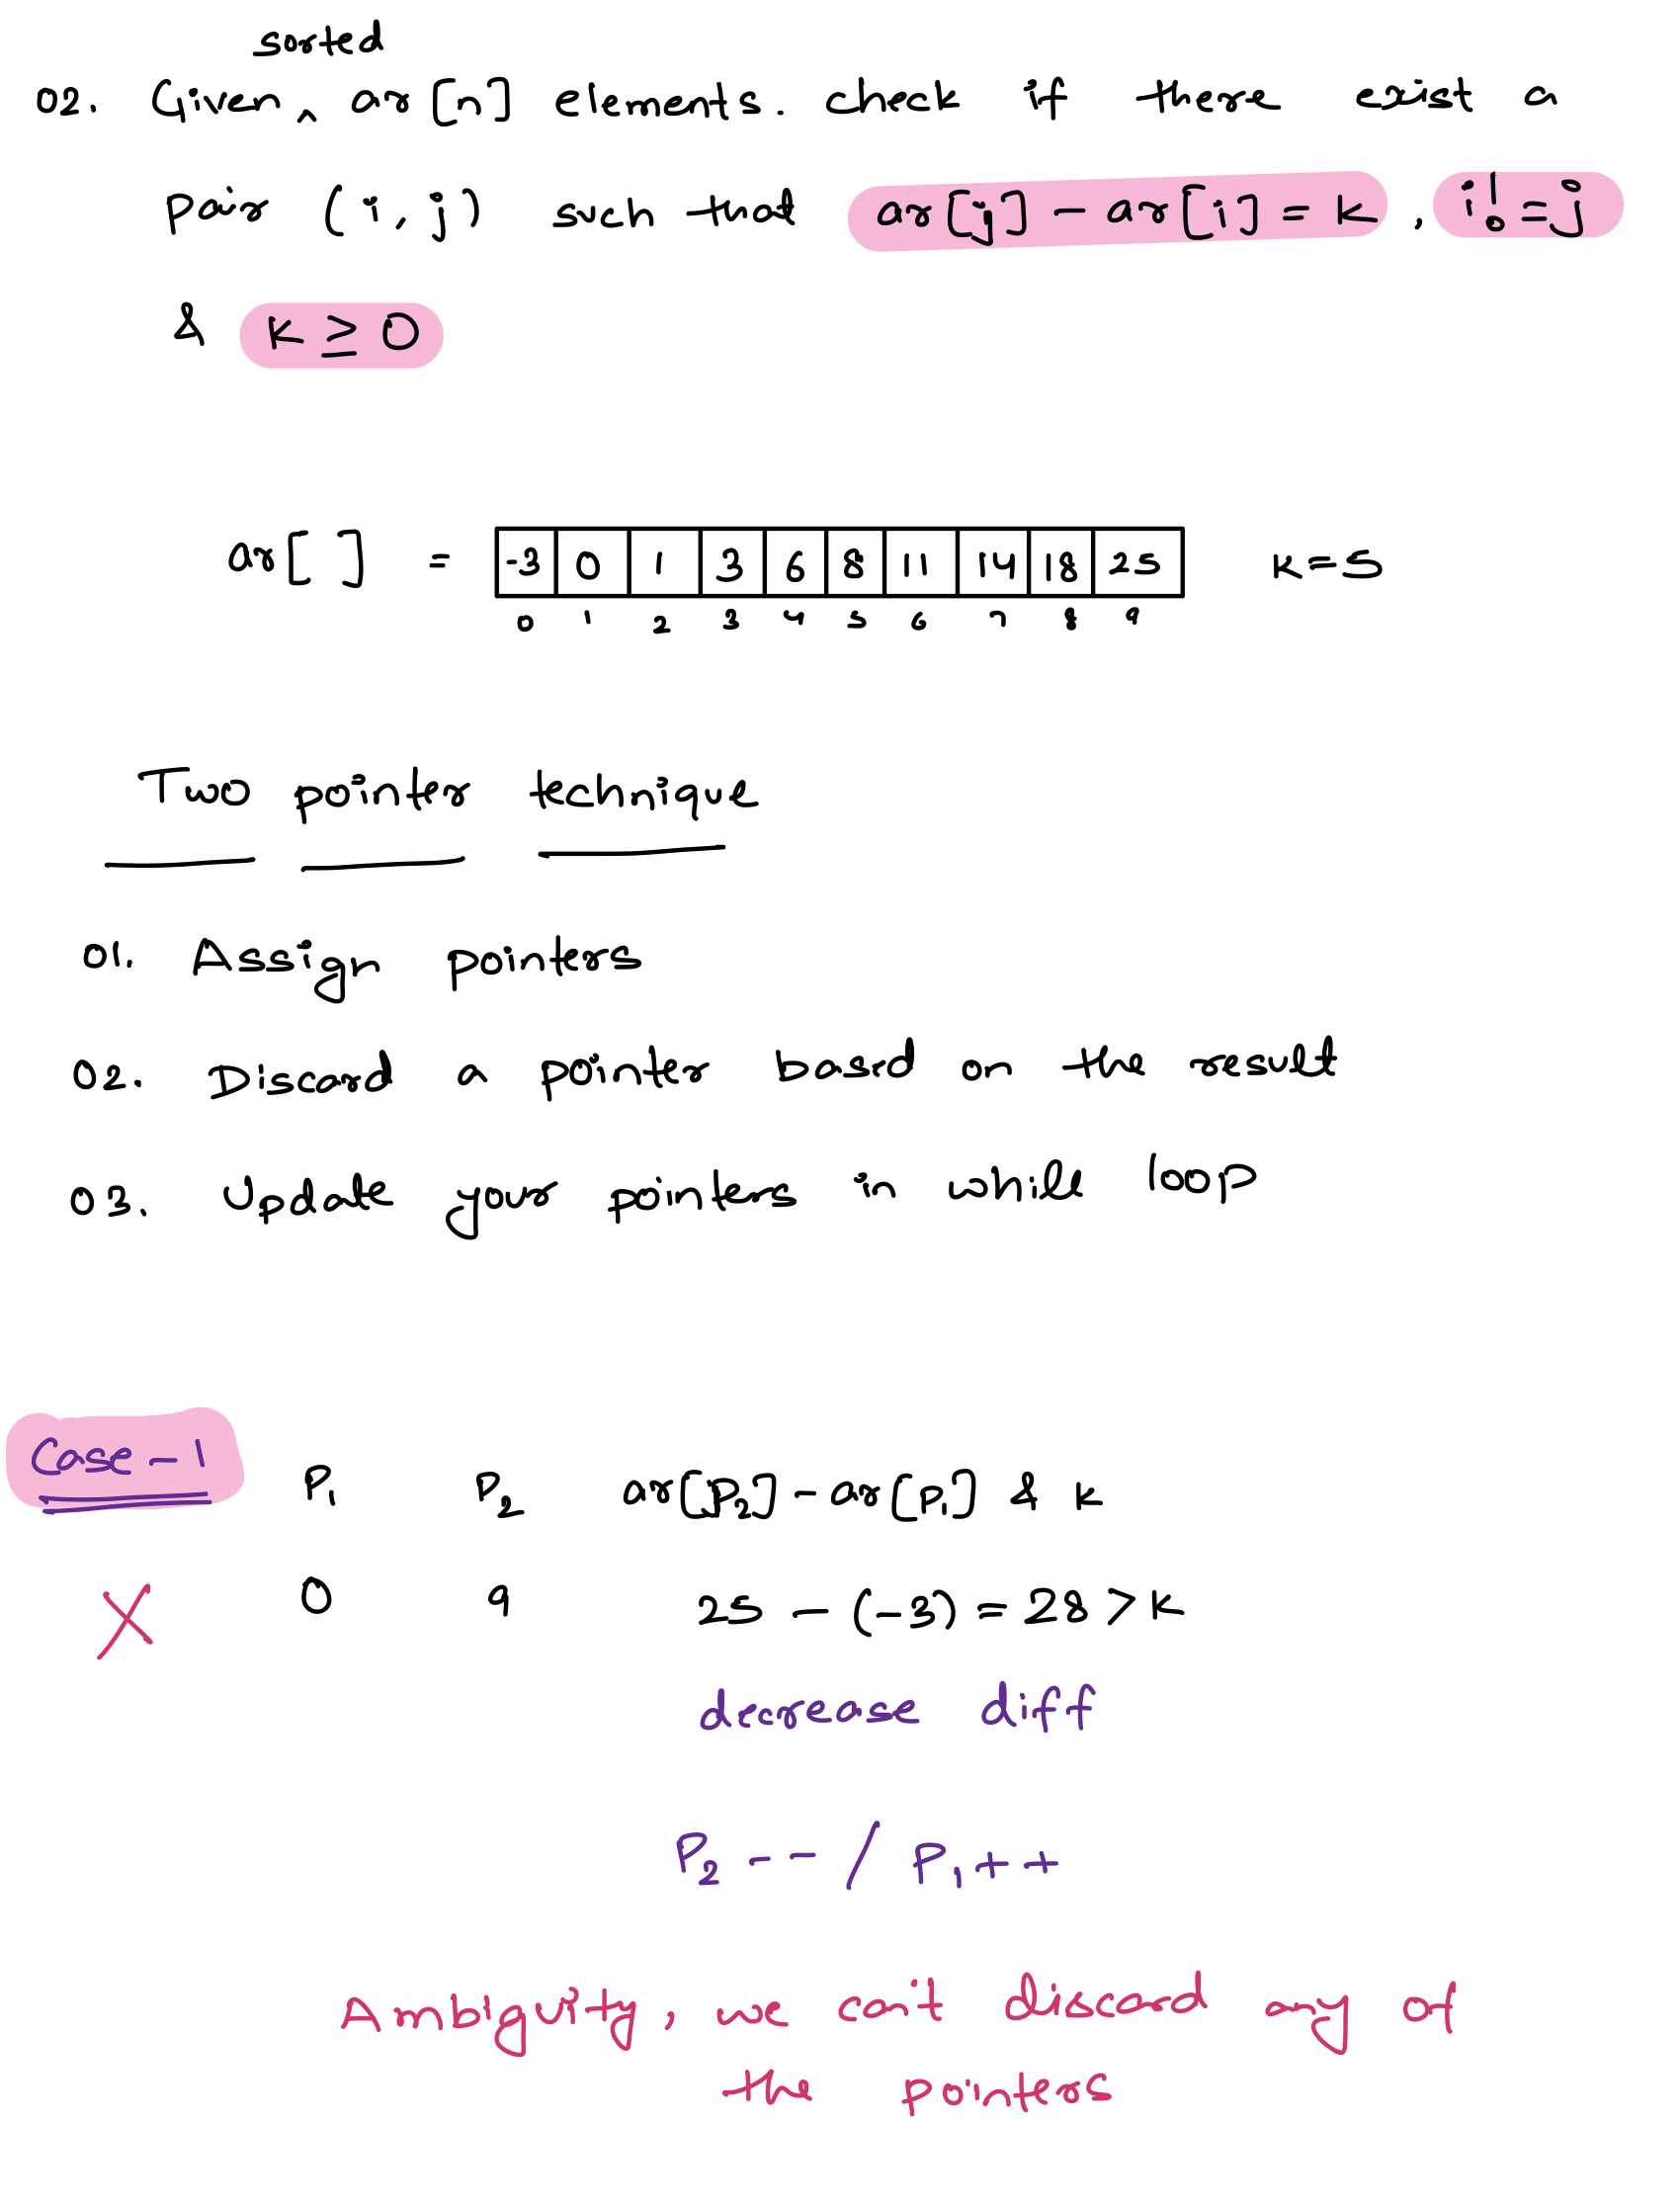 sorted
02. Given ^ ar[n] elements. check if there exist a
pair (i, j) such that ar[j] - ar[i] = k , i! = j
& k ≥ 0
ar[ ] = -3 0 1 3 6 8 11 14 18 25 k=5
0 1 2 3 4 5 6 7 8 9
Two pointer technique
01. Assign pointers
02. Discard a pointer based on the result
03. Update your pointers in while loop
Case - 1 P1 P2 ar[P2] - ar[P1] & k
X 0 9 25 - (-3) = 28 > k
decrease diff
P2 -- / P1 ++
Ambiguity, we can't discard any of
the pointers